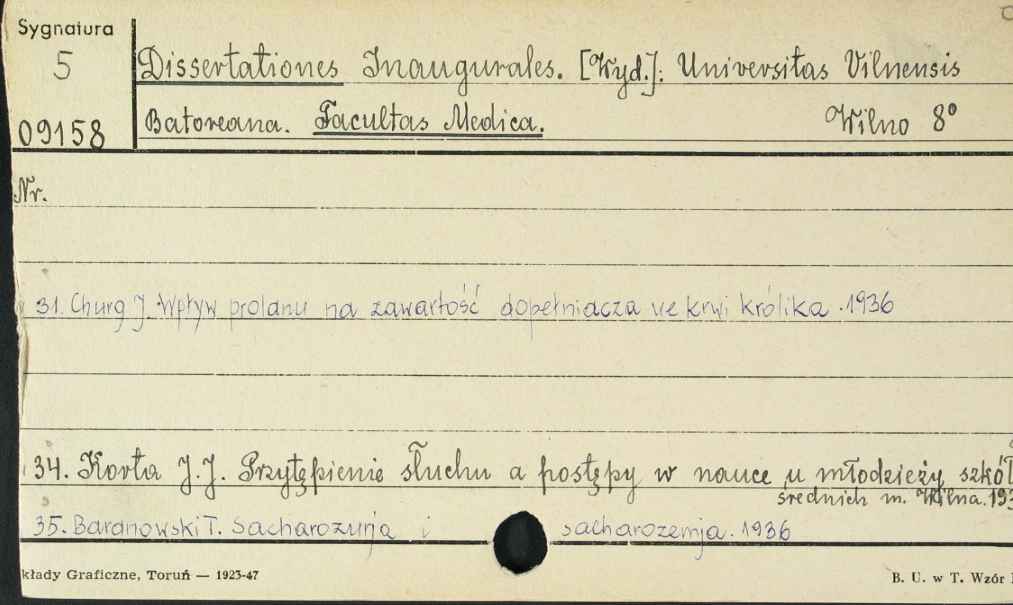 Sygnatura
5
Dissertationes Inaugurales. [Wyd.]: Universitas Vilnensis
09158
Batoreana. Facultas Medica. Wilno 8°
Nr.
31. Churg J. Wpływ prolanu na zawartość dopełniacza we krwi królika. 1936
34. Korta J.J. Przytępienie słuchu a postępy w nauce u młodzieży szkół
średnich m. Wilna.
35. Baranowski T. Sacharozurja i sacharozemja. 1936
kłady Graficzne, Toruń — 1923-47
B. U. w T. Wzór